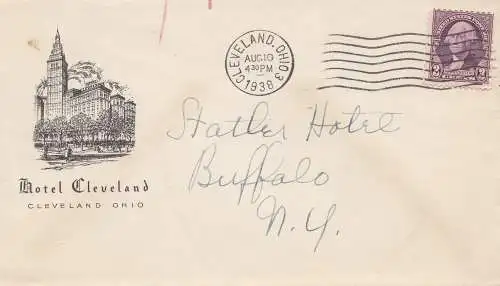 CLEVELAND, OHIO 3
AUG 10
4 30 PM
1938
Statler Hotel
Buffalo
N. Y.
Hotel Cleveland
CLEVELAND OHIO
3 3